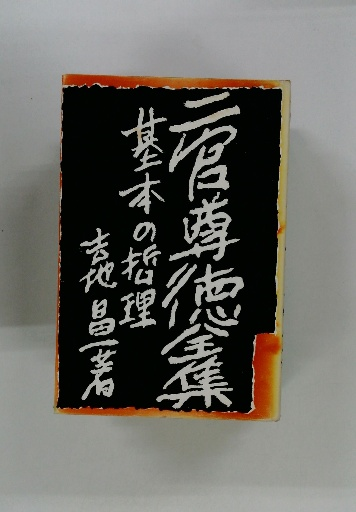 二宮尊徳全集
基本の哲理
吉地昌一著